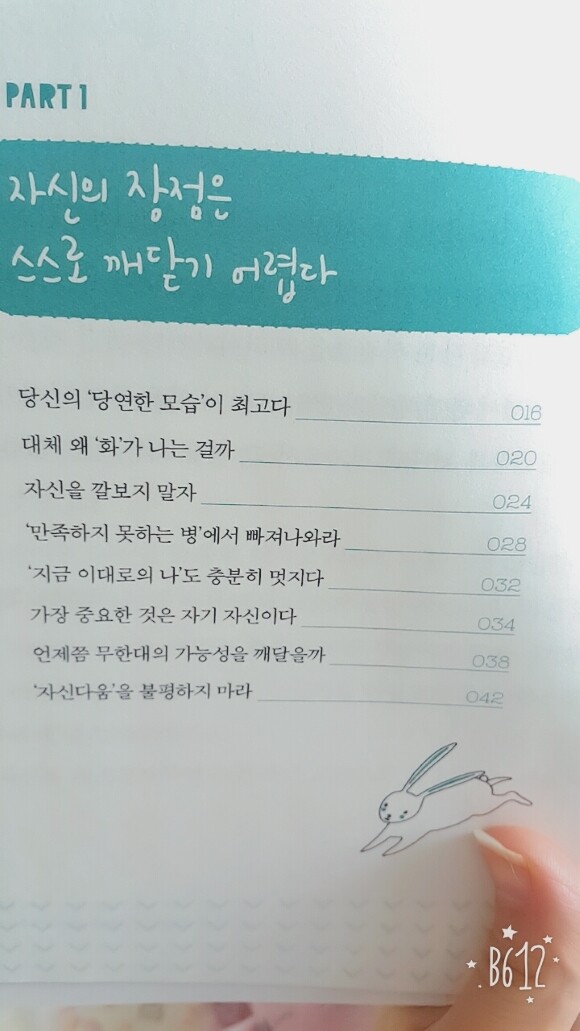 PART 1
자신의 장점은
스스로 깨닫기 어렵다
당신의 ‘당연한 모습’이 최고다 016
대체 왜 ‘화’가 나는 걸까 020
자신을 깔보지 말자 024
‘만족하지 못하는 병’에서 빠져나와라 028
‘지금 이대로의 나’도 충분히 멋지다 032
가장 중요한 것은 자기 자신이다 034
언제쯤 무한대의 가능성을 깨달을까 038
‘자신다움’을 불평하지 마라 042
B612